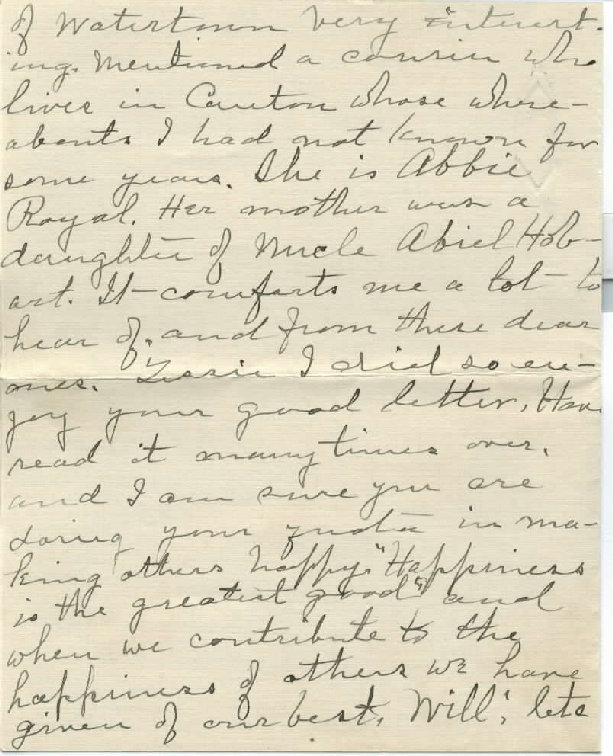 of Watertown very interest-
ing. Mentioned a cousin who
lives in Canton whose where-
abouts I had not known for
some years. She is Abbie
Royal. Her mother was a
daughter of Uncle Abiel Hob-
art. It comforts me a lot to
hear of, and from these dear
ones. Lizzie I did so en-
joy your good letter. Have
read it many times over.
and I am sure you are
doing your quota in ma-
king others happy. "Happiness
is the greatest good" and
when we contribute to the
happiness of others we have
given of our best. Will, lets